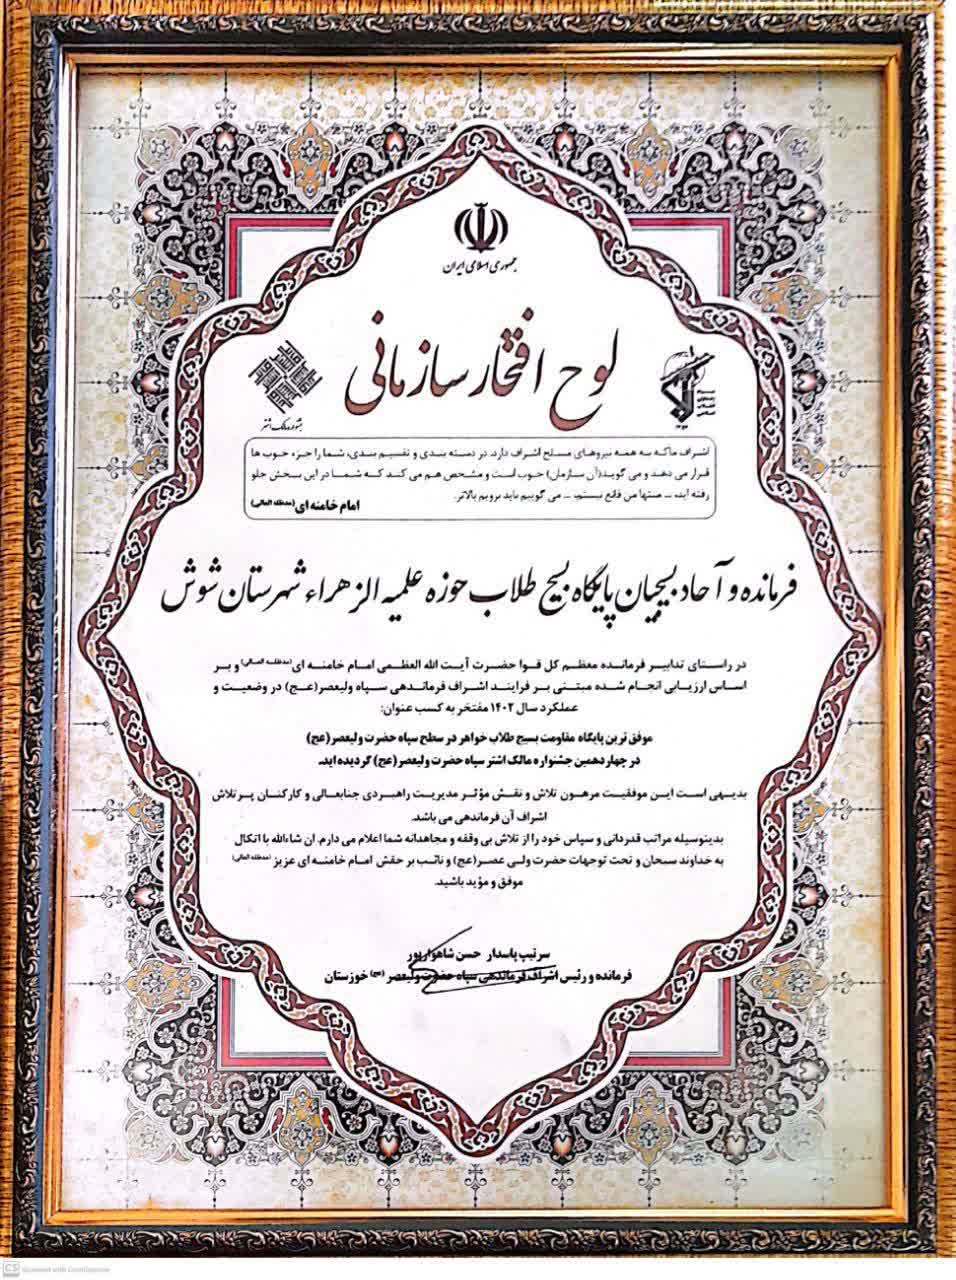 جمهوری اسلامی ایران
لوح افتخار سازمانی
جشنواره مالک اشتر
سپاه پاسداران انقلاب اسلامی
اشراف ماکه به همه نیروهای مسلح اشراف دارد. در دسته بندی و تقسیم بندی، شما را جزء خوب ها
قرار می دهند و می گوید(آن سازمان) خوب است و مشخص هم می کنند که شما در این بخش جلو
رفته اید، ... منتها من قانع نیستم، ... می گوییم باید برویم بالاتر.
امام خامنه ای (مدظله العالی)
فرمانده و آحاد بسیجیان پایگاه بسیج طلاب حوزه علمیه الزهراء شهرستان شوش
در راستای تدابیر فرمانده معظم کل قوا حضرت آیت الله العظمی امام خامنه ای (مدظله العالی) و بر
اساس ارزیابی انجام شده مبتنی بر فرایند اشراف فرماندهی سپاه ولیعصر(عج) در وضعیت و
عملکرد سال ۱۴۰۲ مفتخر به کسب عنوان:
موفق ترین پایگاه مقاومت بسیج طلاب خواهر در سطح سپاه حضرت ولیعصر(عج)
در چهاردهمین جشنواره مالک اشتر سپاه حضرت ولیعصر(عج) گردیده اید.
بدیهی است این موفقیت مرهون تلاش و نقش مؤثر مدیریت راهبردی جنابعالی و کارکنان پرتلاش
اشراف آن فرماندهی می باشد.
بدینوسیله مراتب قدردانی و سپاس خود را از تلاش بی وقفه و مجاهدانه شما اعلام می دارم. ان شاءالله با اتکال
به خداوند سبحان و تحت توجهات حضرت ولی عصر(عج) و نائب بر حقش امام خامنه ای عزیز (مدظله العالی)
موفق و مؤید باشید.
سرتیپ پاسدار حسن شاهوارپور
فرمانده و رئیس اشراف فرماندهی سپاه حضرت ولیعصر (عج) خوزستان
CS Scanned with CamScanner